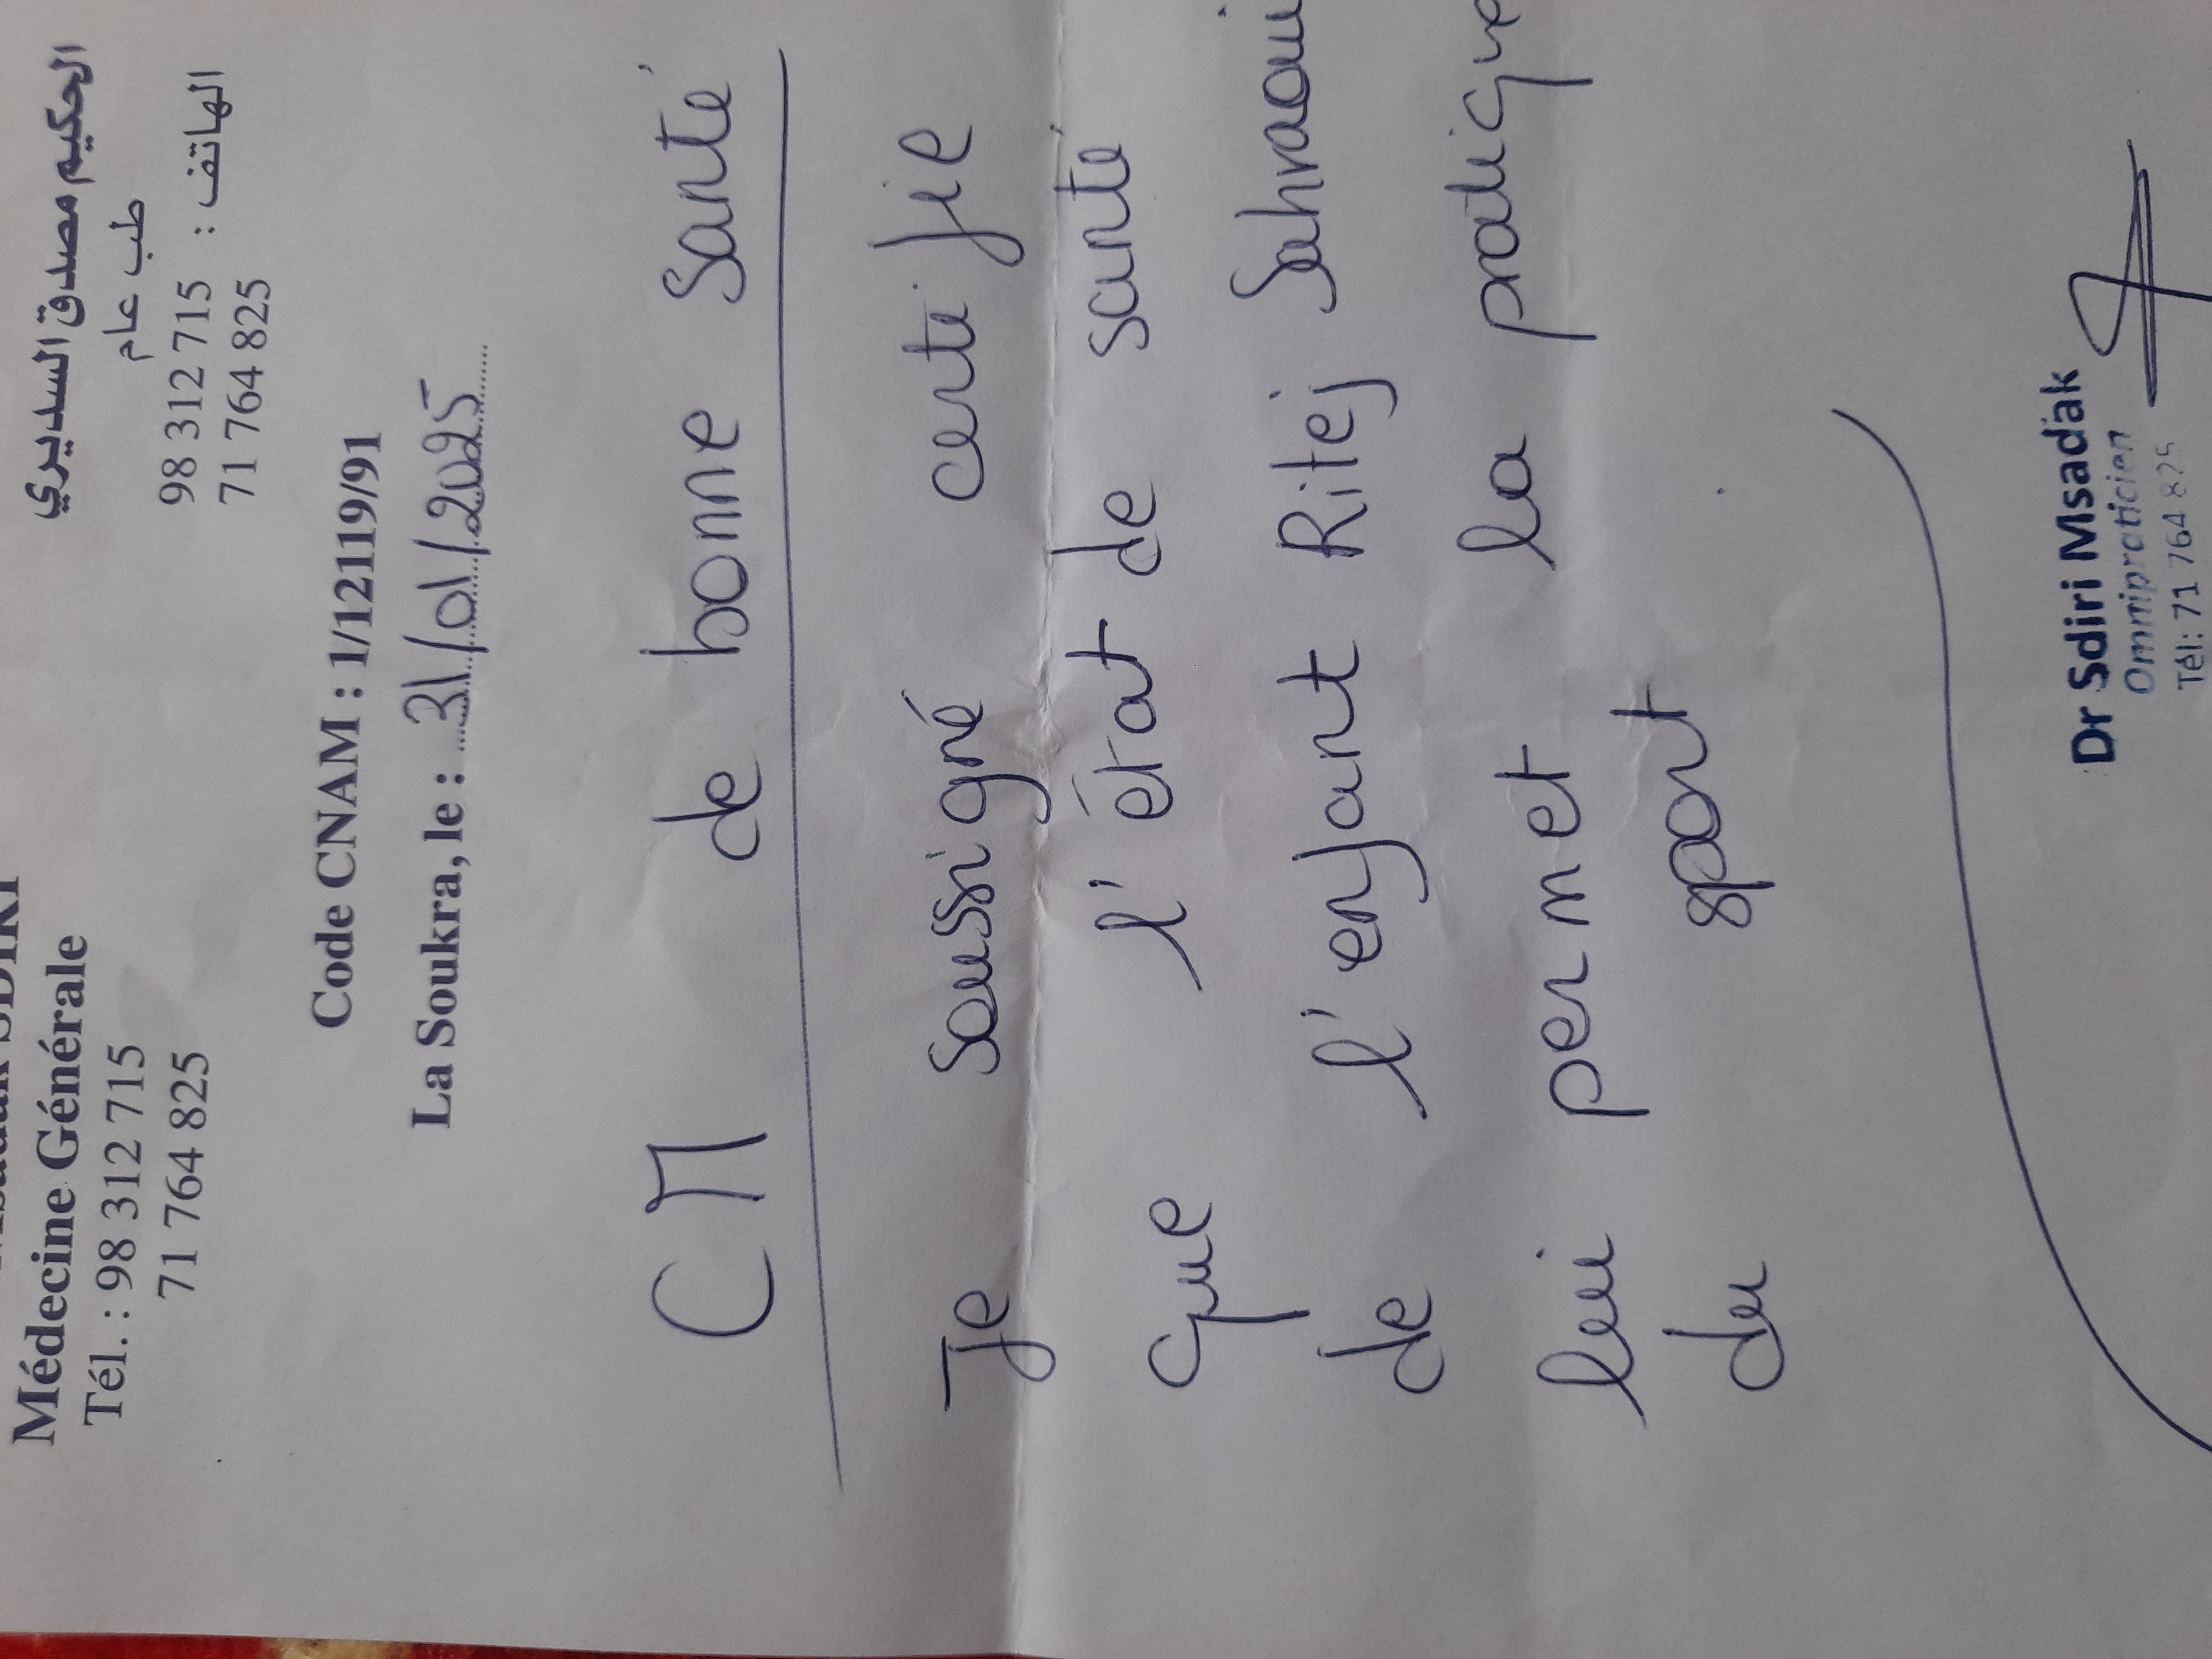 Msadak SDIRI
Médecine Générale
Tél. : 98 312 715
71 764 825
الحكيم مصدق السديري
طب عام
الهاتف : 98 312 715
71 764 825
Code CNAM : 1/12119/91
La Soukra, le : 31/01/2025
CM de bonne santé
Je soussigné certifie
que l'état de santé
de l'enfant Ritej Sahraoui
lui permet la pratique
du sport
Dr Sdiri Msadak
Omnipraticien
Tél: 71 764 825